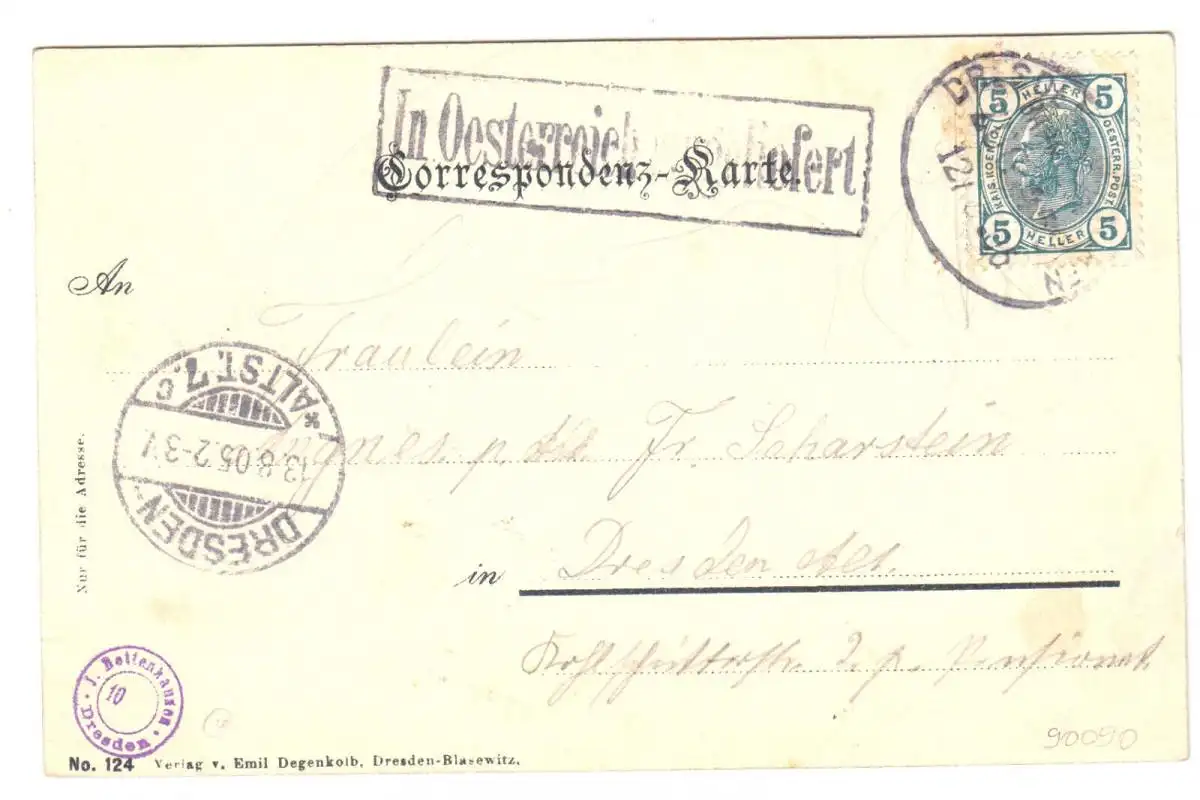 In Oesterreich
Correspondenz-Karte.
5 HELLER 5
KAIS. KOENIGL. OESTERR. POST.
5 HELLER 5
An
Fräulein
Agnes p. Fr. Scharstein
in Dresden Alt.
2. p. Pensionat
DRESDEN-
13.8.05. 2-3 V.
*ALTST. 7. c
Nur für die Adresse.
J. Bettenhausen
10
Dresden
No. 124 Verlag v. Emil Degenkolb, Dresden-Blasewitz.
90090